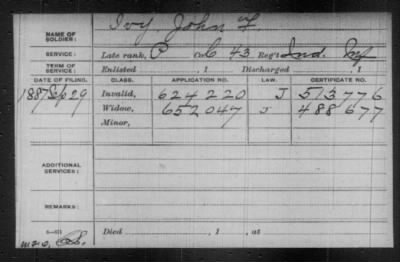 NAME OF SOLDIER: Ivy John F.
SERVICE: Late rank, P Co. C 43 Reg't Ind. Inf
TERM OF SERVICE: Enlisted , 1 Discharged , 1
DATE OF FILING. CLASS. APPLICATION NO. LAW. CERTIFICATE NO.
1887 Sep 29 Invalid, 624220 J 513776
Widow, 652047 J 488677
Minor,
ADDITIONAL SERVICES:
REMARKS:
Died , 1 , at